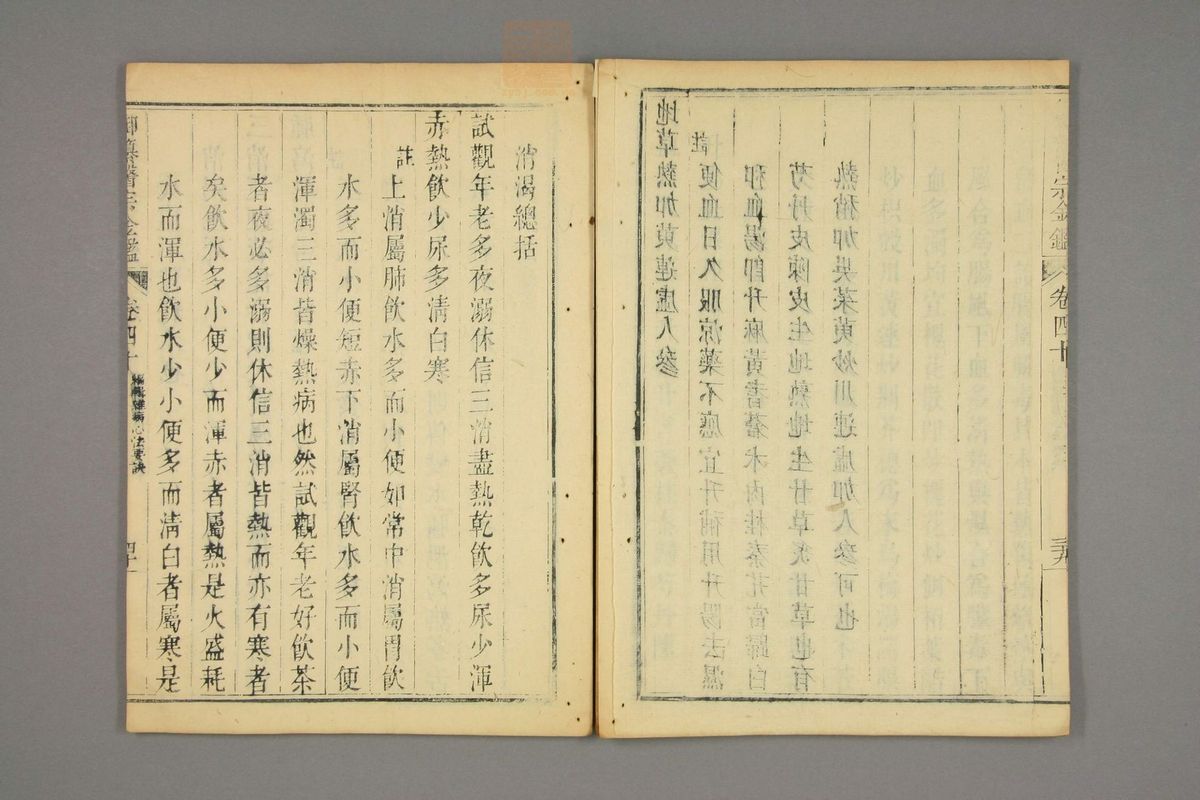 地草熱加萸連虛人參
註便血日久服涼藥不應宜升補用升陽去濕
和血湯卽升麻黃耆蒼朮肉桂秦艽當歸白
芍丹皮陳皮生地熟地生甘草炙甘草也有
熱稍加吳茱萸炒川連虛加人參可也
宗金鑑
卷四十
消渴總括
試觀年老多夜溺休信三消盡熱乾飲多尿少渾
赤熱飲少尿多淸白寒
註上消屬肺飲水多而小便如常中消屬胃飲
水多而小便短赤下消屬腎飲水多而小便
渾濁三消皆燥熱病也然試觀年老好飲茶
者夜必多溺則休信三消皆熱而亦有寒者
矣飲水多小便少而渾赤者屬熱是火盛耗
水而渾也飲水少小便多而淸白者屬寒是
御纂醫宗金鑑 卷四十 編輯雜病心法要訣 四十一